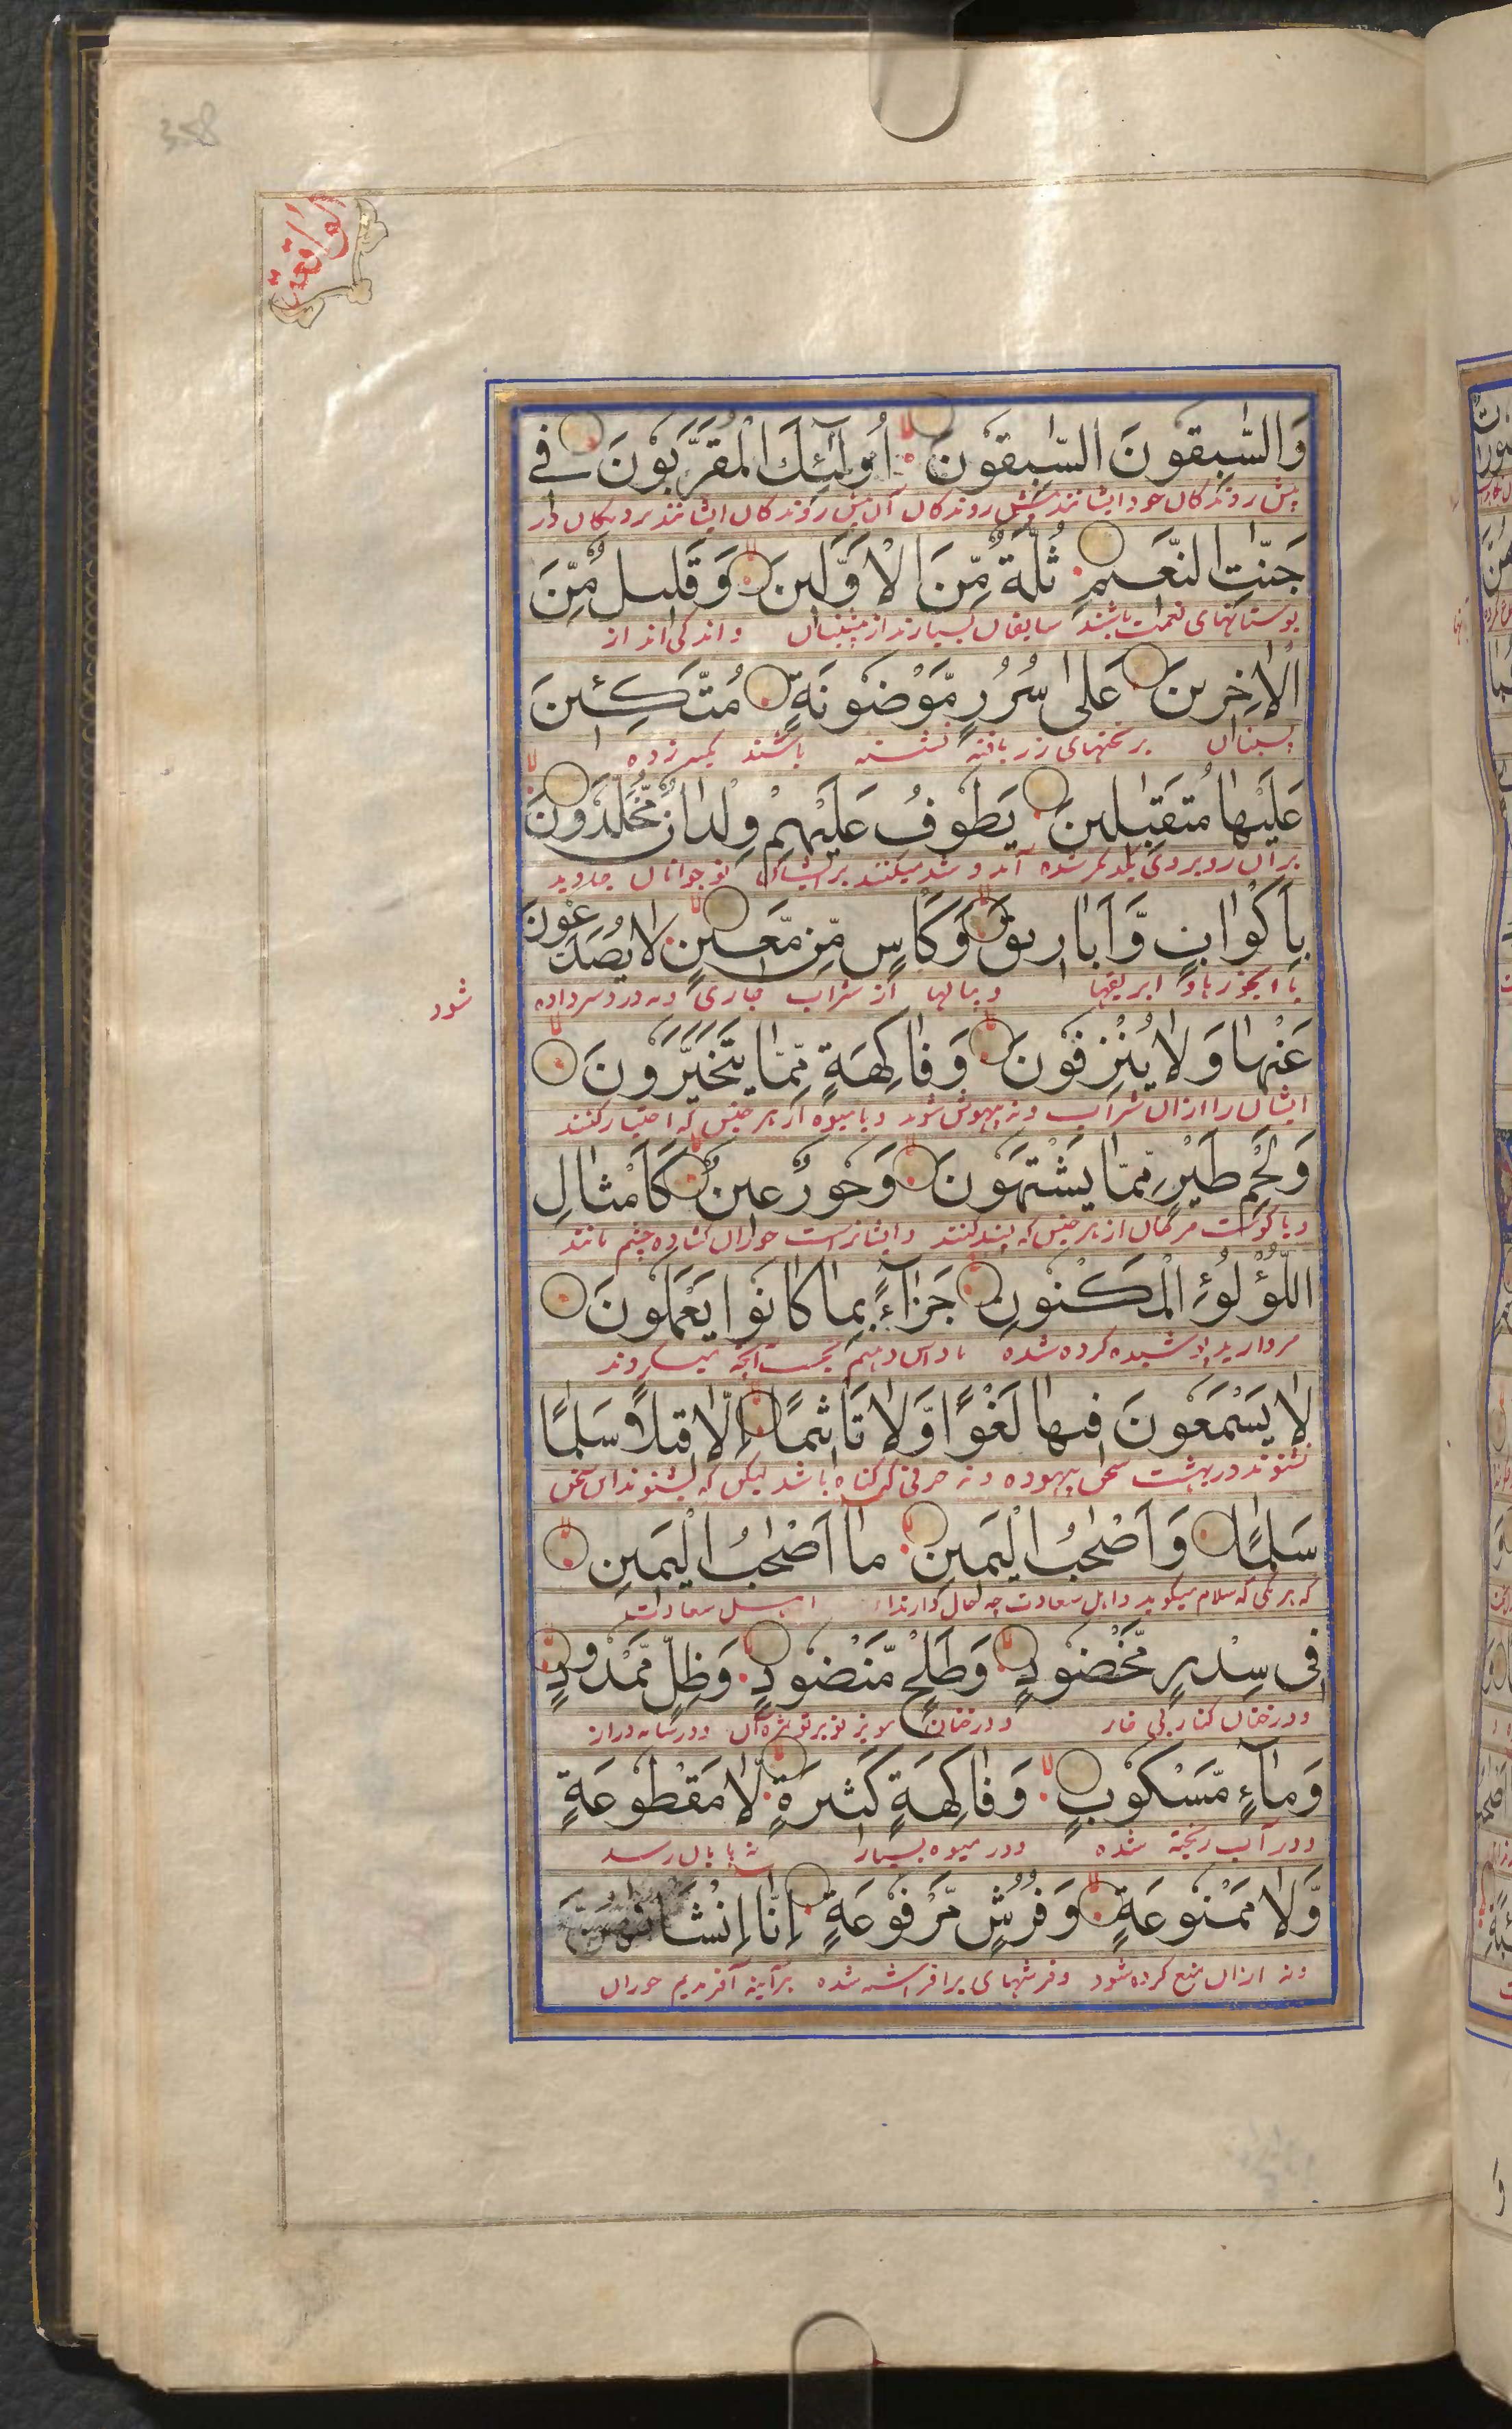 358
الواقعة
وَالسّٰبِقُونَ السّٰبِقُونَ اُولٰٓئِكَ الْمُقَرَّبُونَ فِے
پیش روندکان خود ایشانند پیش روندکان آن پیش روندکان ایشانند نزدیکان در
جَنّٰتِ النَّعِيمِ ثُلَّةٌ مِّنَ الْاَوَّلِينَ وَقَلِيلٌ مِّنَ
بوستانهای نعمت باشند سابقان بسیارند از پیشینیان و اندکی اند از
الْاٰخِرِينَ عَلٰى سُرُرٍ مَّوْضُونَةٍ مُتَّكِـِٔينَ
پسینان بر تختهای زر بافته نشسته باشند تکیه زده
عَلَيْهَا مُتَقٰبِلِينَ يَطُوفُ عَلَيْهِمْ وِلْدَانٌ مُّخَلَّدُونَ
بر آن روبروی یکدیکر شده آمد و شد میکنند بر ایشان نوجوانان جاوید
بِاَكْوَابٍ وَّاَبَارِيقَ وَكَاْسٍ مِّنْ مَّعِينٍ لَا يُصَدَّعُونَ
با ابخورها و ابریقها و پیالها از شراب جاری و نه درد سر داده
شود
عَنْهَا وَلَا يُنْزِفُونَ وَفَاكِهَةٍ مِّمَّا يَتَخَيَّرُونَ
ایشان را از ان شراب و نه بیهوش شوند و با میوه از هر جنس که اختیار کنند
وَلَحْمِ طَيْرٍ مِّمَّا يَشْتَهُونَ وَحُورٌ عِينٌ كَاَمْثَالِ
و با کوشت مرغان از هر جنس که پسند کنند و ایشانراست حوران کشاده چشم مانند
اللُّؤْلُؤِ الْمَكْنُونِ جَزَآءً بِمَا كَانُوا يَعْمَلُونَ
مروارید پوشیده کرده شده پاداش دهیم بجهت آنچه میکردند
لَا يَسْمَعُونَ فِيهَا لَغْوًا وَّلَا تَاْثِيمًا اِلَّا قِيلًا سَلٰمًا
نشنوند در بهشت سخن بیهوده و نه حرفی که کناه باشد لیکن که بشنوند این سخن
سَلٰمًا وَاَصْحٰبُ الْيَمِينِ مَا اَصْحٰبُ الْيَمِينِ
که هر یکی که سلام میکوید و اهل سعادت چه حال دارند اهل سعادت
فِى سِدْرٍ مَّخْضُودٍ وَطَلْحٍ مَّنْضُودٍ وَظِلٍّ مَّمْدُودٍ
و درختان کنار بی خار و درختان موز تو بر تو و در سایه دراز
وَمَآءٍ مَّسْكُوبٍ وَفَاكِهَةٍ كَثِيرَةٍ لَّا مَقْطُوعَةٍ
و در آب ریخته شده و در میوه بسیار نه پایان رسد
وَّلَا مَمْنُوعَةٍ وَفُرُشٍ مَّرْفُوعَةٍ اِنَّا اَنْشَاْنٰهُنَّ
و نه از ان منع کرده شود و فرشهای برافراشته شده هر آینه آفریدیم حوران